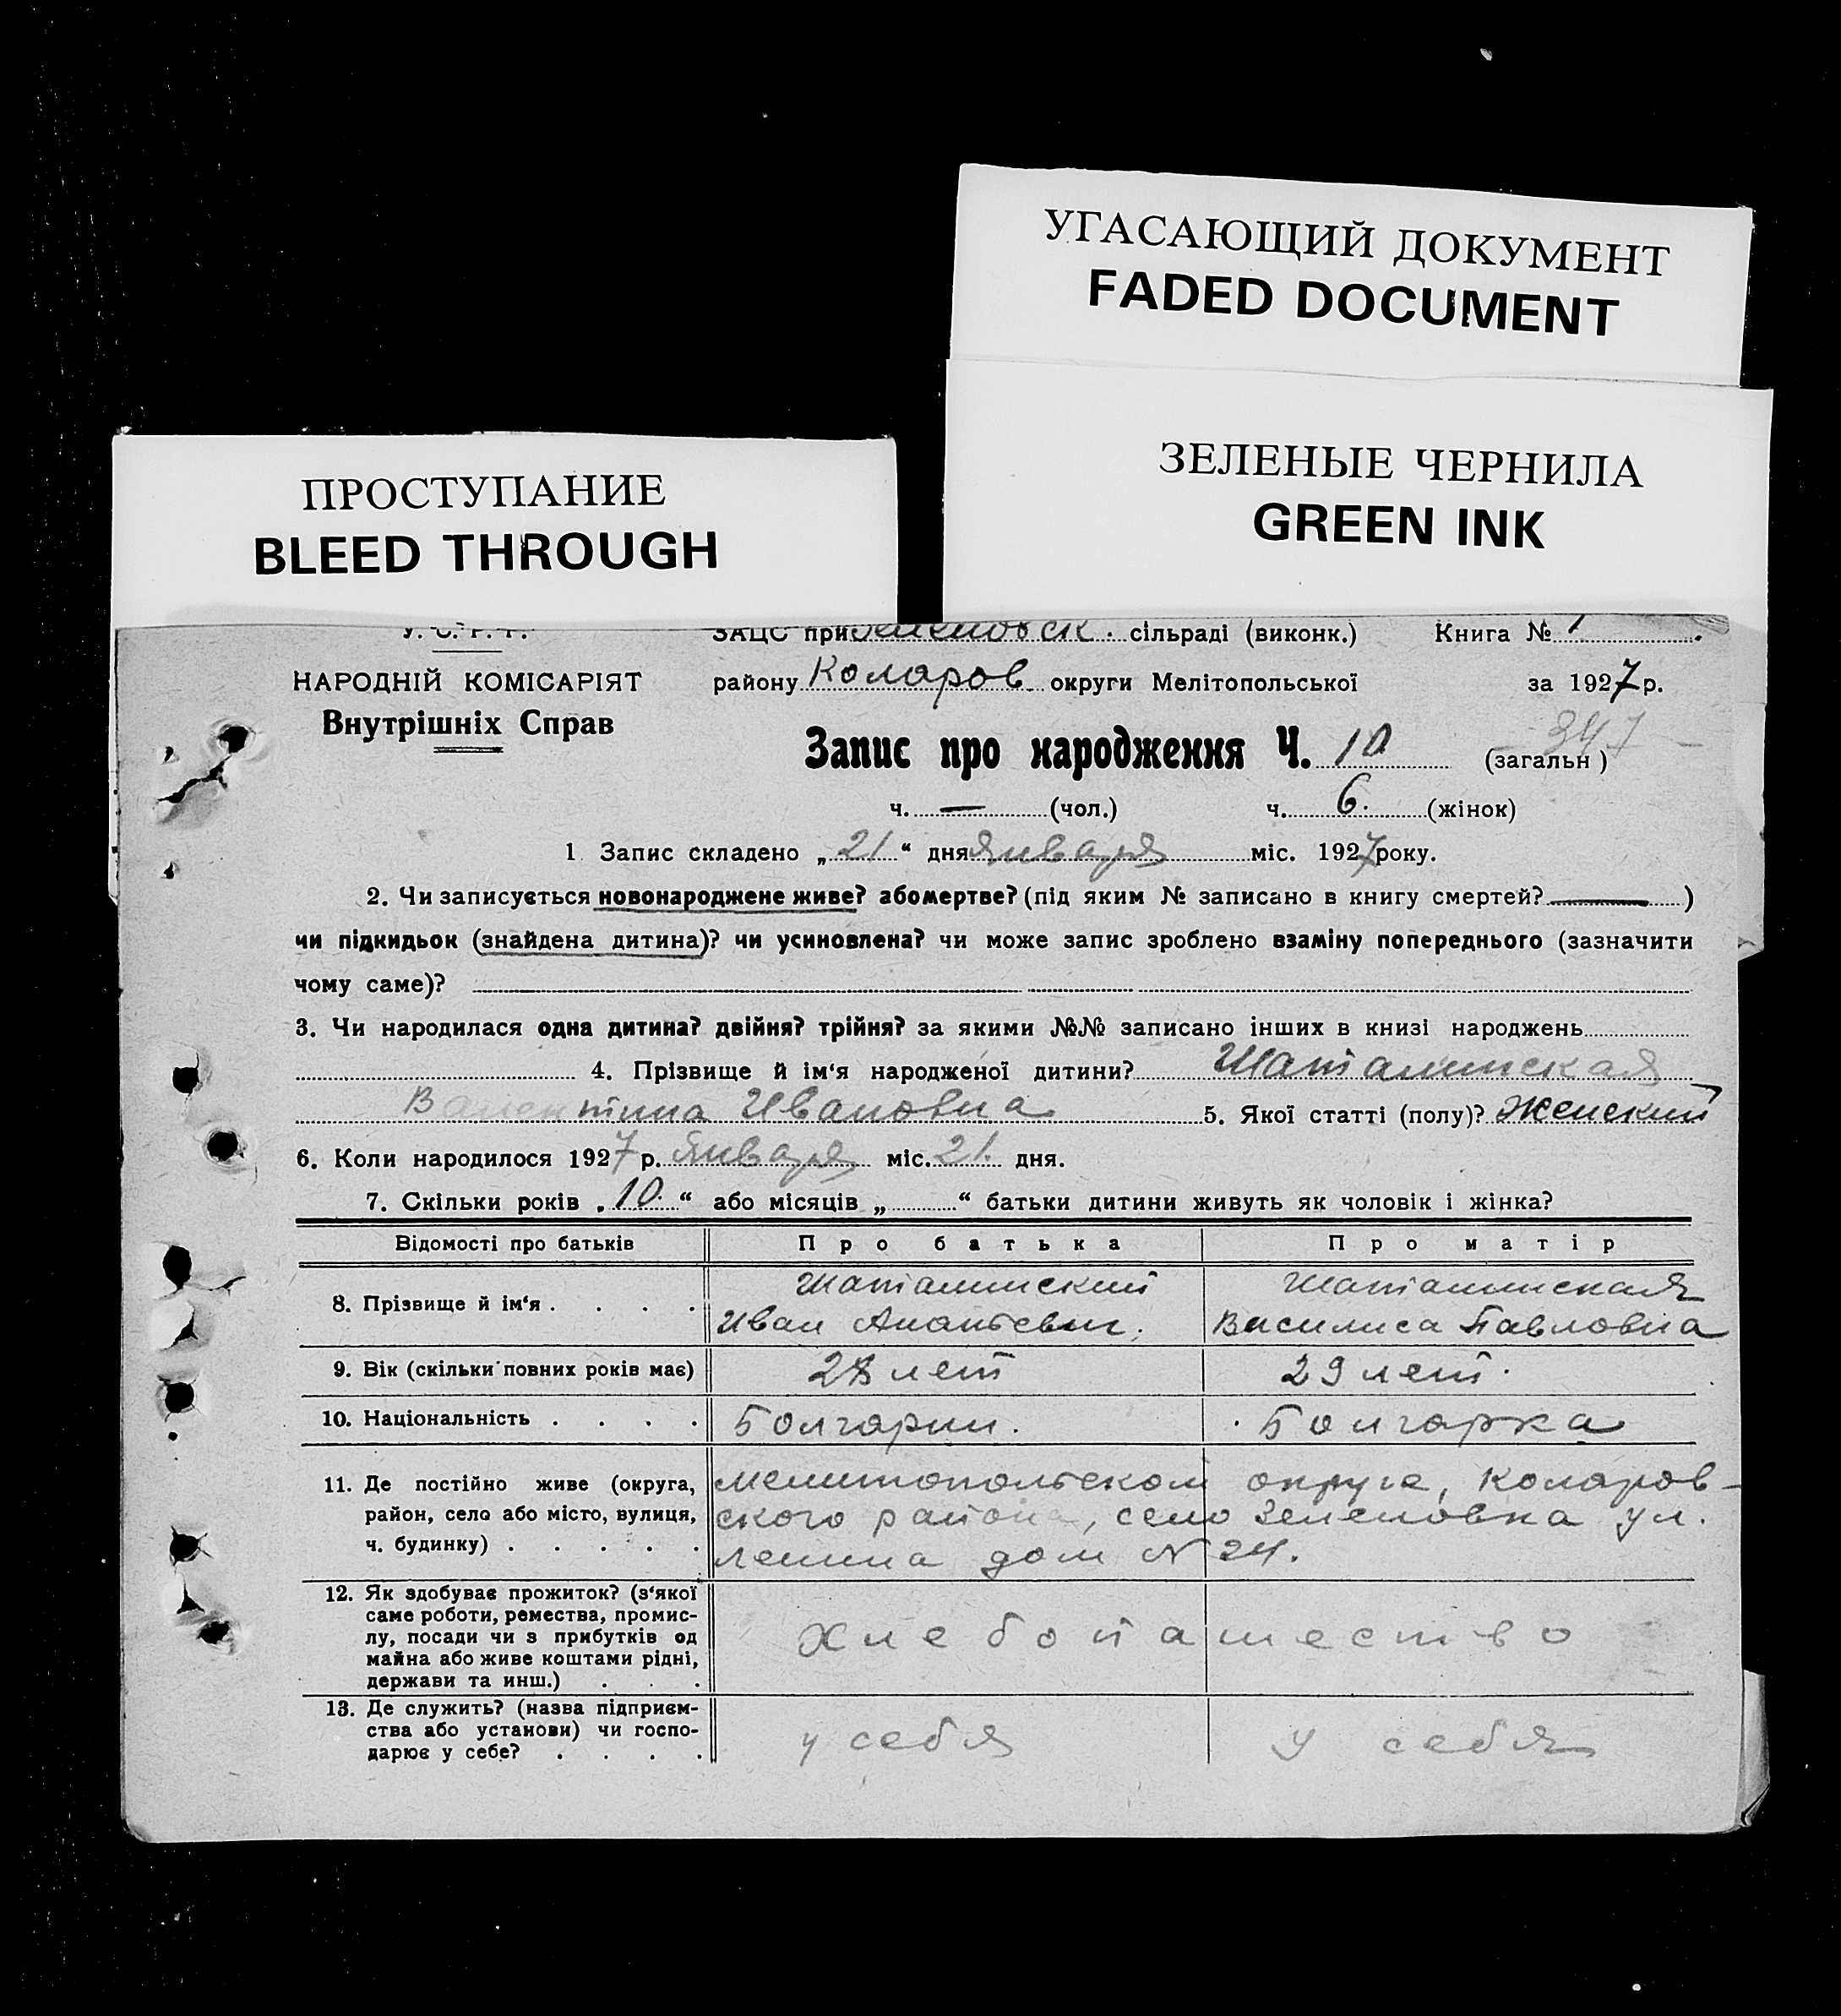 УГАСАЮЩИЙ ДОКУМЕНТ
FADED DOCUMENT
ЗЕЛЕНЫЕ ЧЕРНИЛА
GREEN INK
ПРОСТУПАНИЕ
BLEED THROUGH
ЗАЦС при сільраді (виконк.) Книга № 1
НАРОДНІЙ КОМІСАРІЯТ району Коларов округи Мелітопольської за 1927 р.
Внутрішніх Справ
347
Запис про народження Ч. 10 (загальн)
ч. — (чол.) ч. 6. (жінок)
1 Запис складено „21“ дня января міс. 1927 року.
2. Чи записується новонароджене живе? або мертве? (під яким № записано в книгу смертей? — )
чи підкидьок (знайдена дитина)? чи усиновлена? чи може запис зроблено взаміну попереднього (зазначити
чому саме)?
3. Чи народилася одна дитина? двійня? трійня? за якими №№ записано інших в книзі народжень
4. Прізвище й ім‘я народженої дитини? Шаталинская
Валентина Ивановна 5. Якої статті (полу)? Женский
6. Коли народилося 1927 р. января міс. 21. дня.
7. Скільки років „10.“ або місяців „ “ батьки дитини живуть як чоловік і жінка?
Відомості про батьків Про батька Про матір
8. Прізвище й ім‘я . . . . Шаталинский Шаталинская
Иван Василиса Павловна
9. Вік (скільки повних років має) 28 лет 29 лет.
10. Національність . . . . Болгарин. Болгарка
11. Де постійно живе (округа, Мелитопольской округе, Коларов-
район, село або місто, вулиця, ского района, село Зеленовка ул.
ч. будинку) . . . . . Ленина дом № 24.
12. Як здобуває прожиток? (з‘якої
саме роботи, ремества, промис-
лу, посади чи з прибутків од Хлебопашество
майна або живе коштами рідні,
держави та инш.) . . .
13. Де служить? (назва підприєм-
ства або установи) чи госпо- у себя у себя
дарює у себе? . . . .